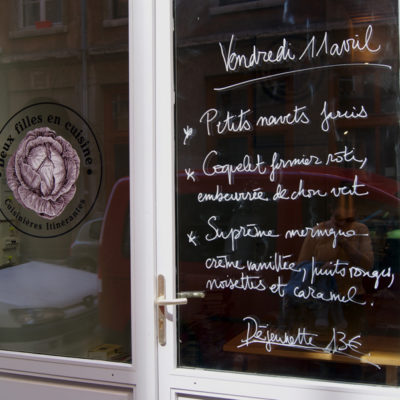 Deux filles en cuisine
Cuisinières Itinérantes
Vendredi 11 avril
* Petits navets farcis
* Coquelet fermier roti,
embeurrée de chou vert
* Suprême meringua
crème vanillée, fruits rouges,
noisettes et caramel.
Déjeunette 13€